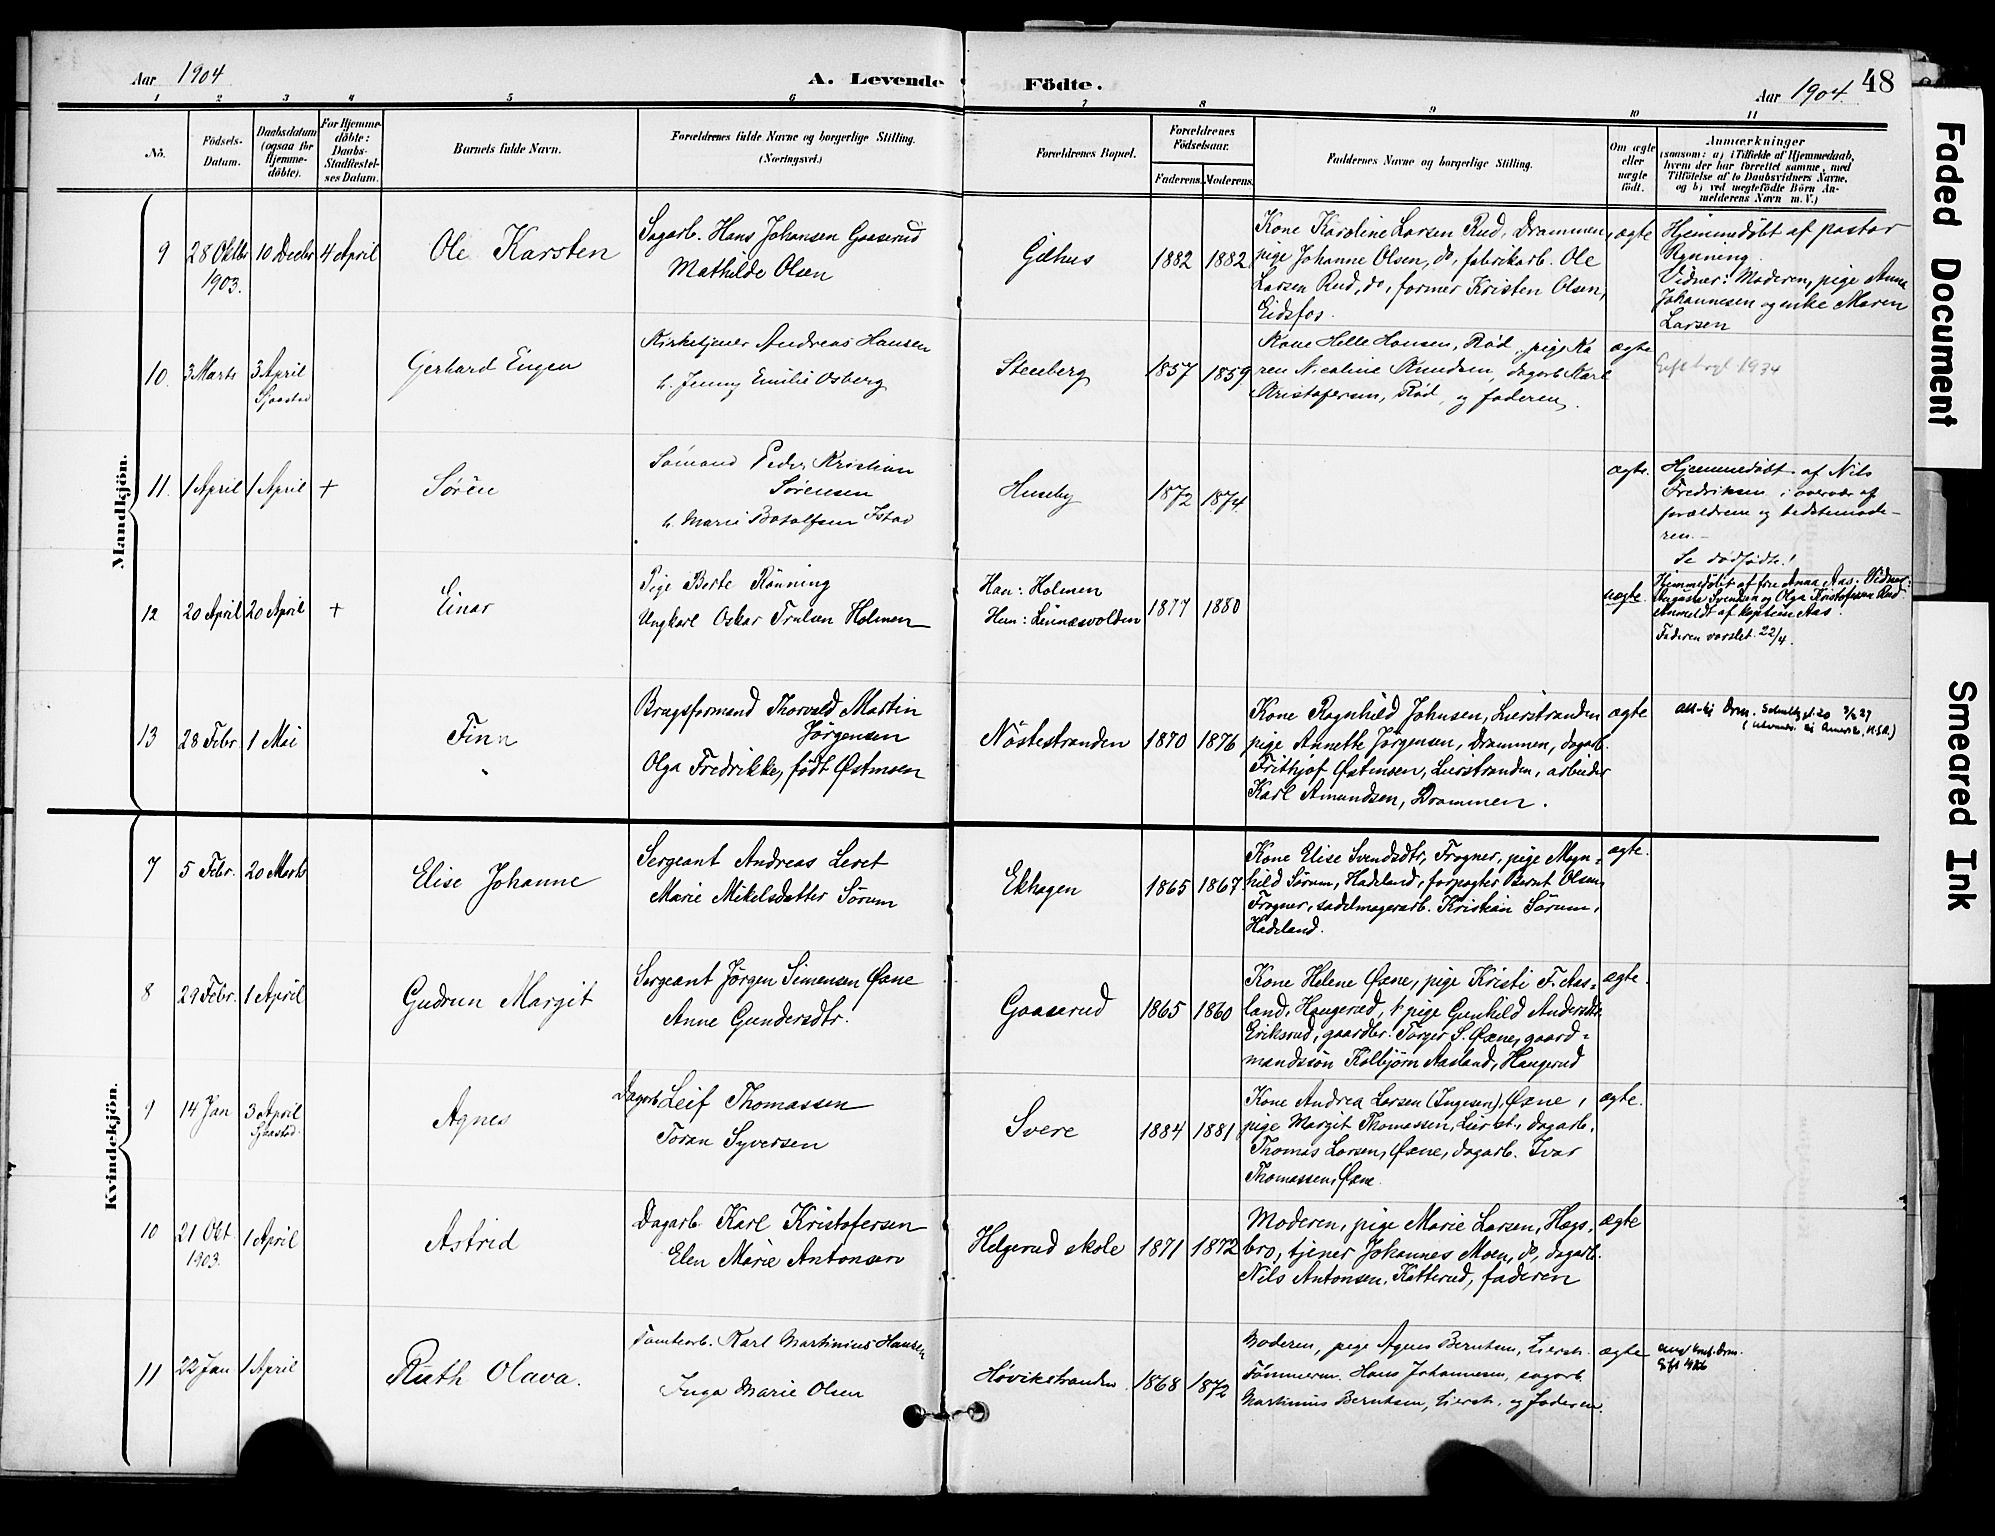 Aar 1904
A. Levende Födte.
Aar 1904. 48
1 2 3 4 5 6 7 8 9 10 11
No.
Födsels-Datum.
Daabsdatum (ogsaa for Hjemme-döbte).
For Hjemme-döbte: Daabs-Stadfæstel-ses Datum.
Barnets fulde Navn.
Forældrenes fulde Navne og borgerlige Stilling. (Næringsvei.)
Forældrenes Bopæl.
Forældrenes Födselsaar.
Faderens. Moderens.
Faddernes Navne og borgerlige Stilling.
Om ægte eller uægte födt.
Anmærkninger
(saasom: a) i Tilfælde af Hjemmedaab,
hvem der har forrettet samme, med
Tilföielse af to Daabsvidners Navne,
og b) ved uægtefödte Börn An-
melderens Navn m. V.)
Mandkjön.
9 28 Oktbr 1903. 10 Decbr 4 April
Ole Karsten
Sagarb. Hans Johansen Gaaserud
Mathilde Olsen
Gilhus
1882 1882
Kone Karoline Larsen Rud, Drammen,
pige Johanne Olsen, do, fabrikarb. Ole
Larsen Rud, do, former Kristen Olsen,
Eidsfos.
ægte
Hjemmedøbt af pastor
Rynning.
Vidner: Moderen, pige Anna
Johannesen og enke Maren
Larsen
10. 3 Marts 3 April Sjaastad
Gerhard Eugen
Kirketjener Andreas Hansen
h. Jenny Emilie Osberg
Stenberg
1857 1859
Kone Helle Hansen, Rød, pige Ka
ren Nicoline Knudsen, dagarb Karl
Kristofersen, Rød, og faderen.
ægte
1934
11. 1 April 1 April +
Sørén
Sømand Peder Kristian
Sørensen
h. Marie
Huseby
1872 1874
ægte.
Hjemmedøbt af Nils
Fredriksen i overvær af
forældrene og bedstemode-
ren.-
Se dødfødte!
12 20 April 20 April +
Einar
Pige Berte Rönning
Ungkarl Oskar Trulsen Holmen
Han: Holmen
Hun: Linnesvolden
1877 1880
uægte.
Hjemmedøbt af fru Anna Aas. Vidner:
Augusta Svendsen og Olga Kristofersen Rud.
Anmeldt af kaptein Aas.
Faderen varslet 22/4.
13 28 Febr 1 Mai
Finn
Brugsformand Thorvald Martin
Jørgensen
Olga Fredrikke, født Østensen
Nöstestranden
1870 1876
Kone Ragnhild Johnsen, Lierstranden
pige Annette Jørgensen, Drammen, dagarb.
Frithjof Østensen, Lierstranden, arbeider
Karl Amundsen, Drammen.
ægte
Kvindekjön.
7 5 Febr. 20 Marts
Elise Johanne
Sergeant Andreas Leret
Marie Mikelsdatter Sörum
Ekhagen
1865 1867
Kone Elise Svendsdtr, Frogner, pige Magn-
hild Sörum, Hadeland, forpagter Bernt Olsen,
Frogner, sadelmagerarb. Kristian Sörum,
Hadeland.
ægte.
8 29 Febr. 1 April
Gudrun Margit
Sergeant Jørgen Simensen Øæne
Anne Gundersdtr.
Gaaserud
1865 1860
Kone Helene Øæne, pige Kristi F. Aas-
land, Haugerud, & pige Gunhild Andersdtr.
Eriksrud, gaardbr. Torger S. Øæne, gaard-
mandssön Kolbjørn Aasland, Haugerud
ægte.
9 14 Jan 3 April Sjaastad.
Agnes
Dagarb Leif Thomassen
Toran Syversen
Svere
1884 1881
Kone Andrea Larsen (Ingesen), Øæne,
pige Margit Thomassen, Lierst., dagarb.
Thomas Larsen, Øæne, dagarb. Ivar
Thomassen, Øæne.
ægte.
10 21 Okt 1903. 1 April
Astrid
Dagarb Karl Kristofersen
Elen Marie Antonsen
Helgerud skole
1871 1872
Moderen, pige Marie Larsen, Hags-
bro, tjener Johannes Moen, do, dagarb.
Nils Antonsen, Katterud, faderen
ægte
11 22 Jan 1 April
Ruth Olava.
Tomtearb. Karl Martinius Hansen
Inga Marie Olsen
Høvikstranden
1868 1872
Moderen, pige Agnes Berntsen, Lierstr.
Tømmerm. Hans Johannesen, sagarb
Martinius Berntsen, Lierstr. og faderen.
ægte
Faded Document
Smeared Ink